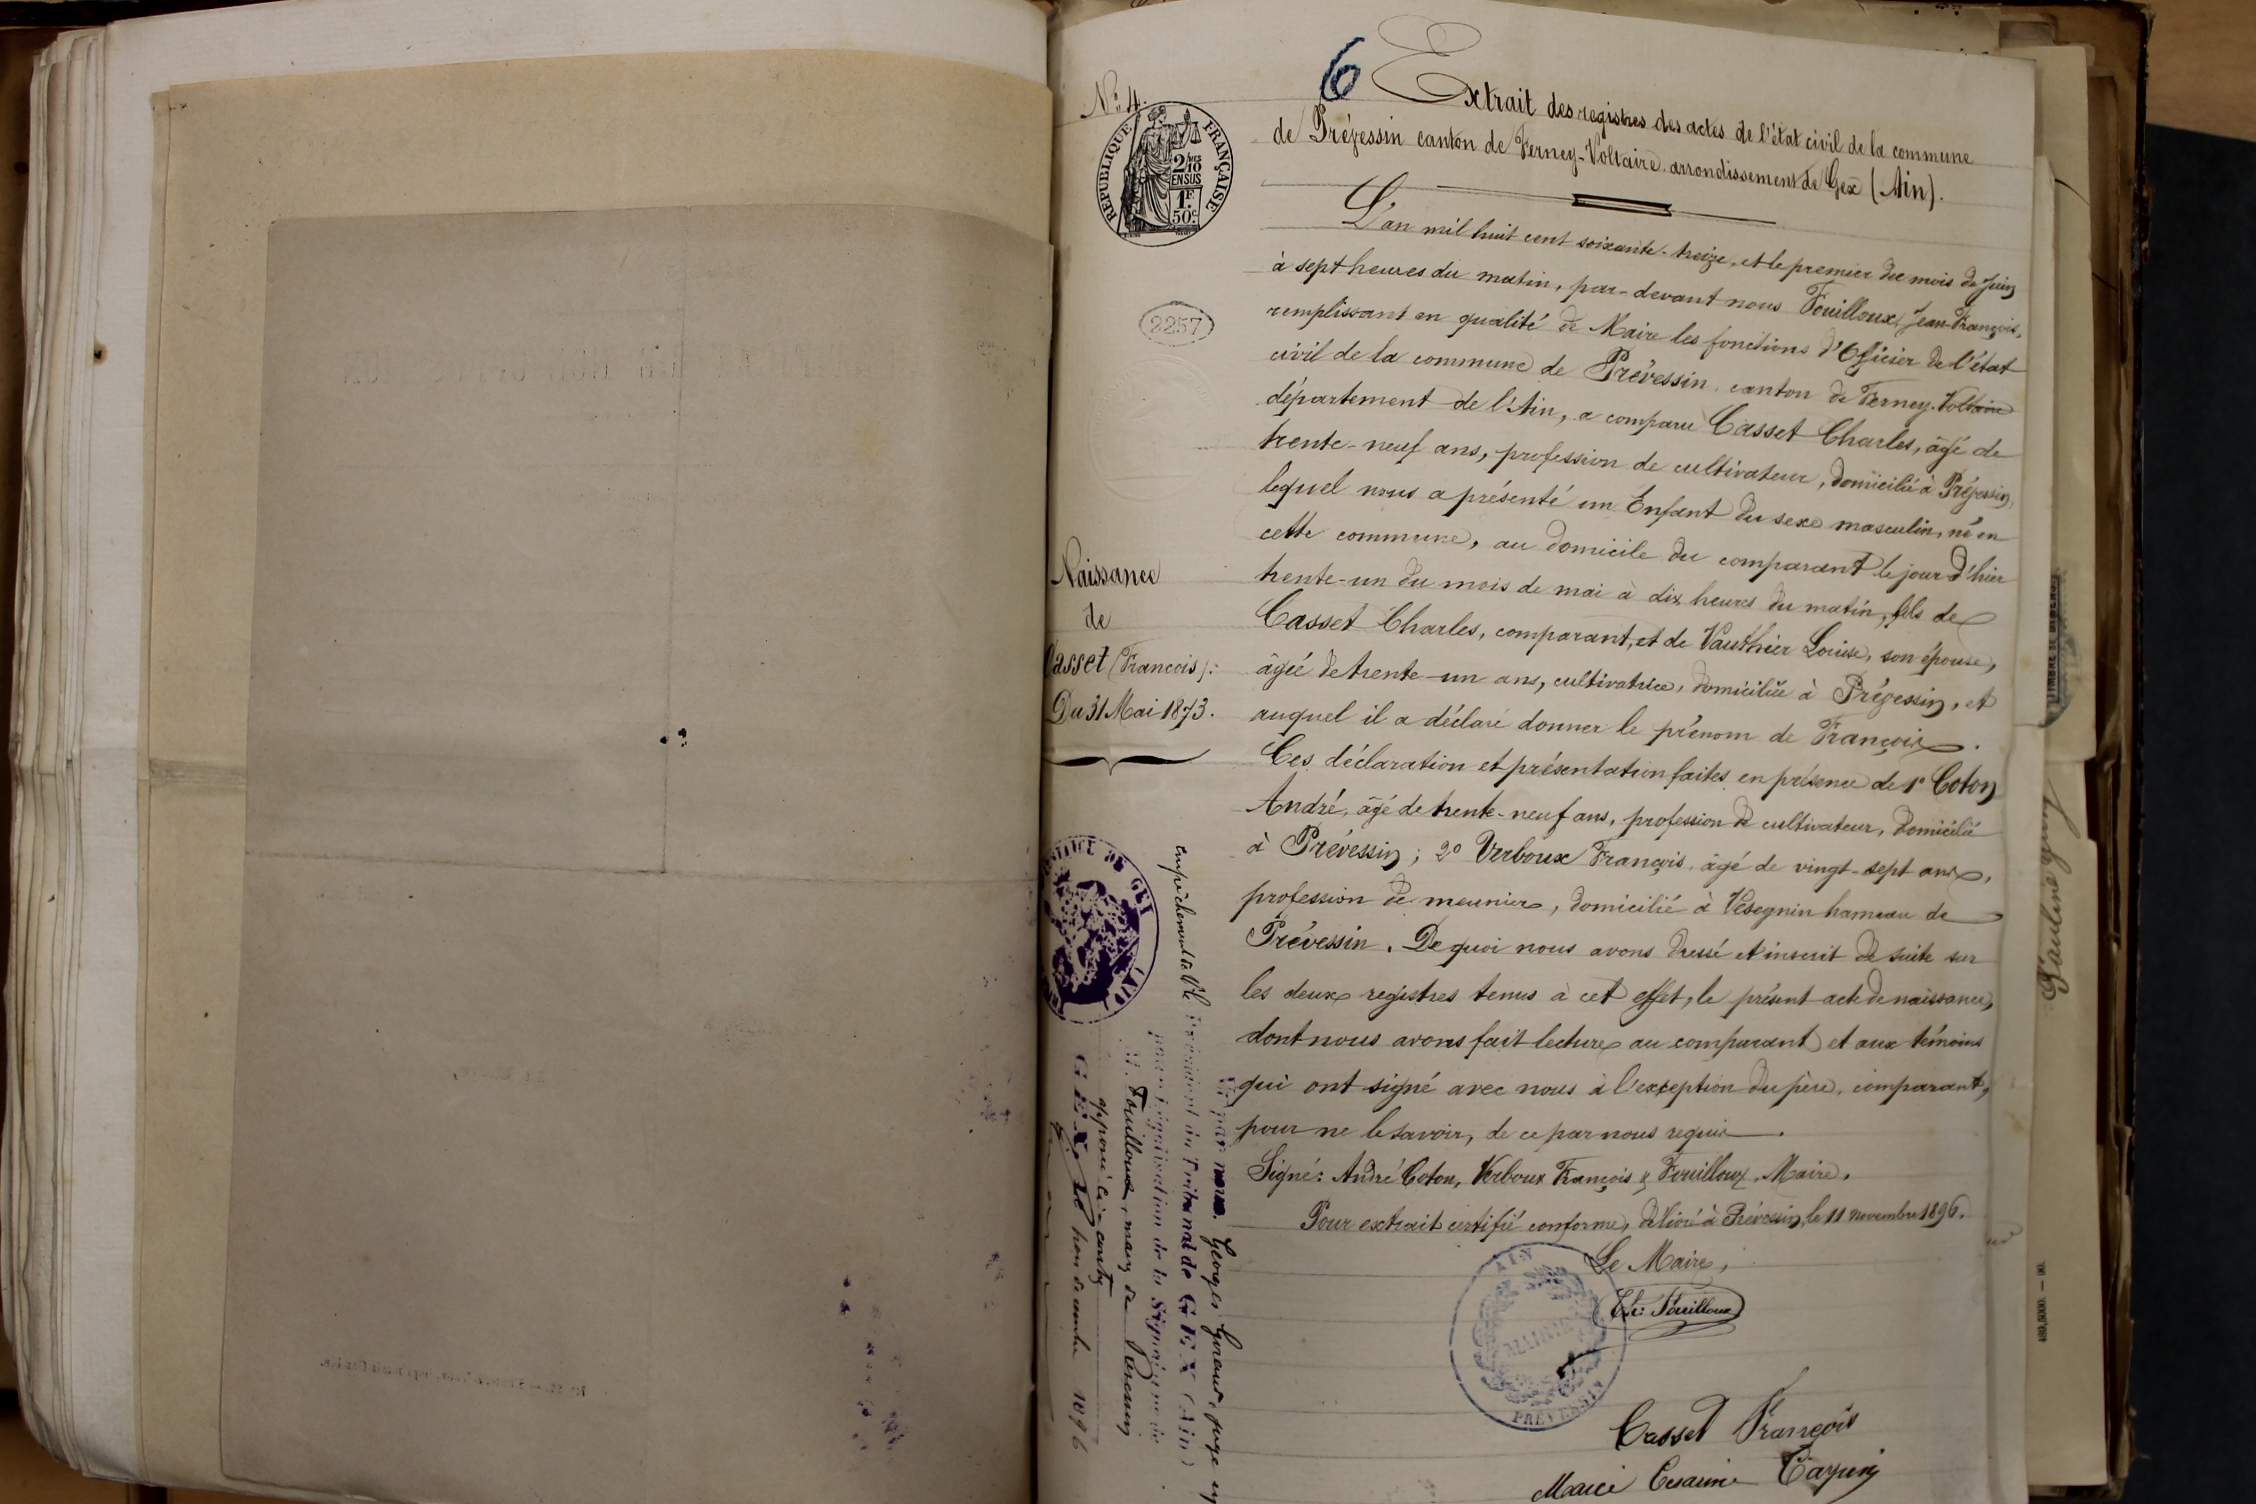 6
Extrait des registres des actes de l'état civil de la commune
de Prévessin canton de Ferney-Voltaire arrondissement de Gex (Ain).
N° 4.
RÉPUBLIQUE FRANÇAISE
2/10
EN SUS
1F
50c
2257
L'an mil huit cent soixante-treize, et le premier du mois de Juin
à sept heures du matin, par-devant nous Fouilloux, Jean-François,
remplissant en qualité de Maire les fonctions d'Officier de l'état
civil de la commune de Prévessin, canton de Ferney-Voltaire
département de l'Ain, a comparu Casset Charles, âgé de
trente-neuf ans, profession de cultivateur, domicilié à Prévessin,
lequel nous a présenté un Enfant du sexe masculin, né en
cette commune, au domicile du comparant le jour d'hier
trente-un du mois de mai à dix heures du matin, fils de
Casset Charles, comparant, et de Vauthier Louise, son épouse,
âgée de trente-un ans, cultivatrice, domiciliée à Prévessin, et
auquel il a déclaré donner le prénom de François.
Ces déclaration et présentation faites en présence de 1° Coton
André, âgé de trente-neuf ans, profession de cultivateur, domicilié
à Prévessin; 2° Verboux François, âgé de vingt-sept ans,
profession de meunier, domicilié à Vésegnin hameau de
Prévessin. De quoi nous avons dressé et inscrit de suite sur
les deux registres tenus à cet effet, le présent acte de naissance,
dont nous avons fait lecture au comparant et aux témoins
qui ont signé avec nous à l'exception du père, comparant,
pour ne le savoir, de ce par nous requis.
Signé: André Coton, Verboux François & Fouilloux, Maire.
Pour extrait certifié conforme, délivré à Prévessin, le 11 novembre 1896.
Le Maire,
Fouilloux
AIN
MAIRIE
PRÉVESSIN
Casset François
Marie Cesarine
Naissance
de
Casset (François):
Du 31 Mai 1873.
DE GEX
(AIN)
Vu par nous. Georges juge en
empêchement de M. le Président du Tribunal de GEX (Ain)
pour légalisation de la Signature de
M. Fouilloux, maire de Prévessin
apposée ci-contre
GEX, le novembre 1896
489,5000. — 90.